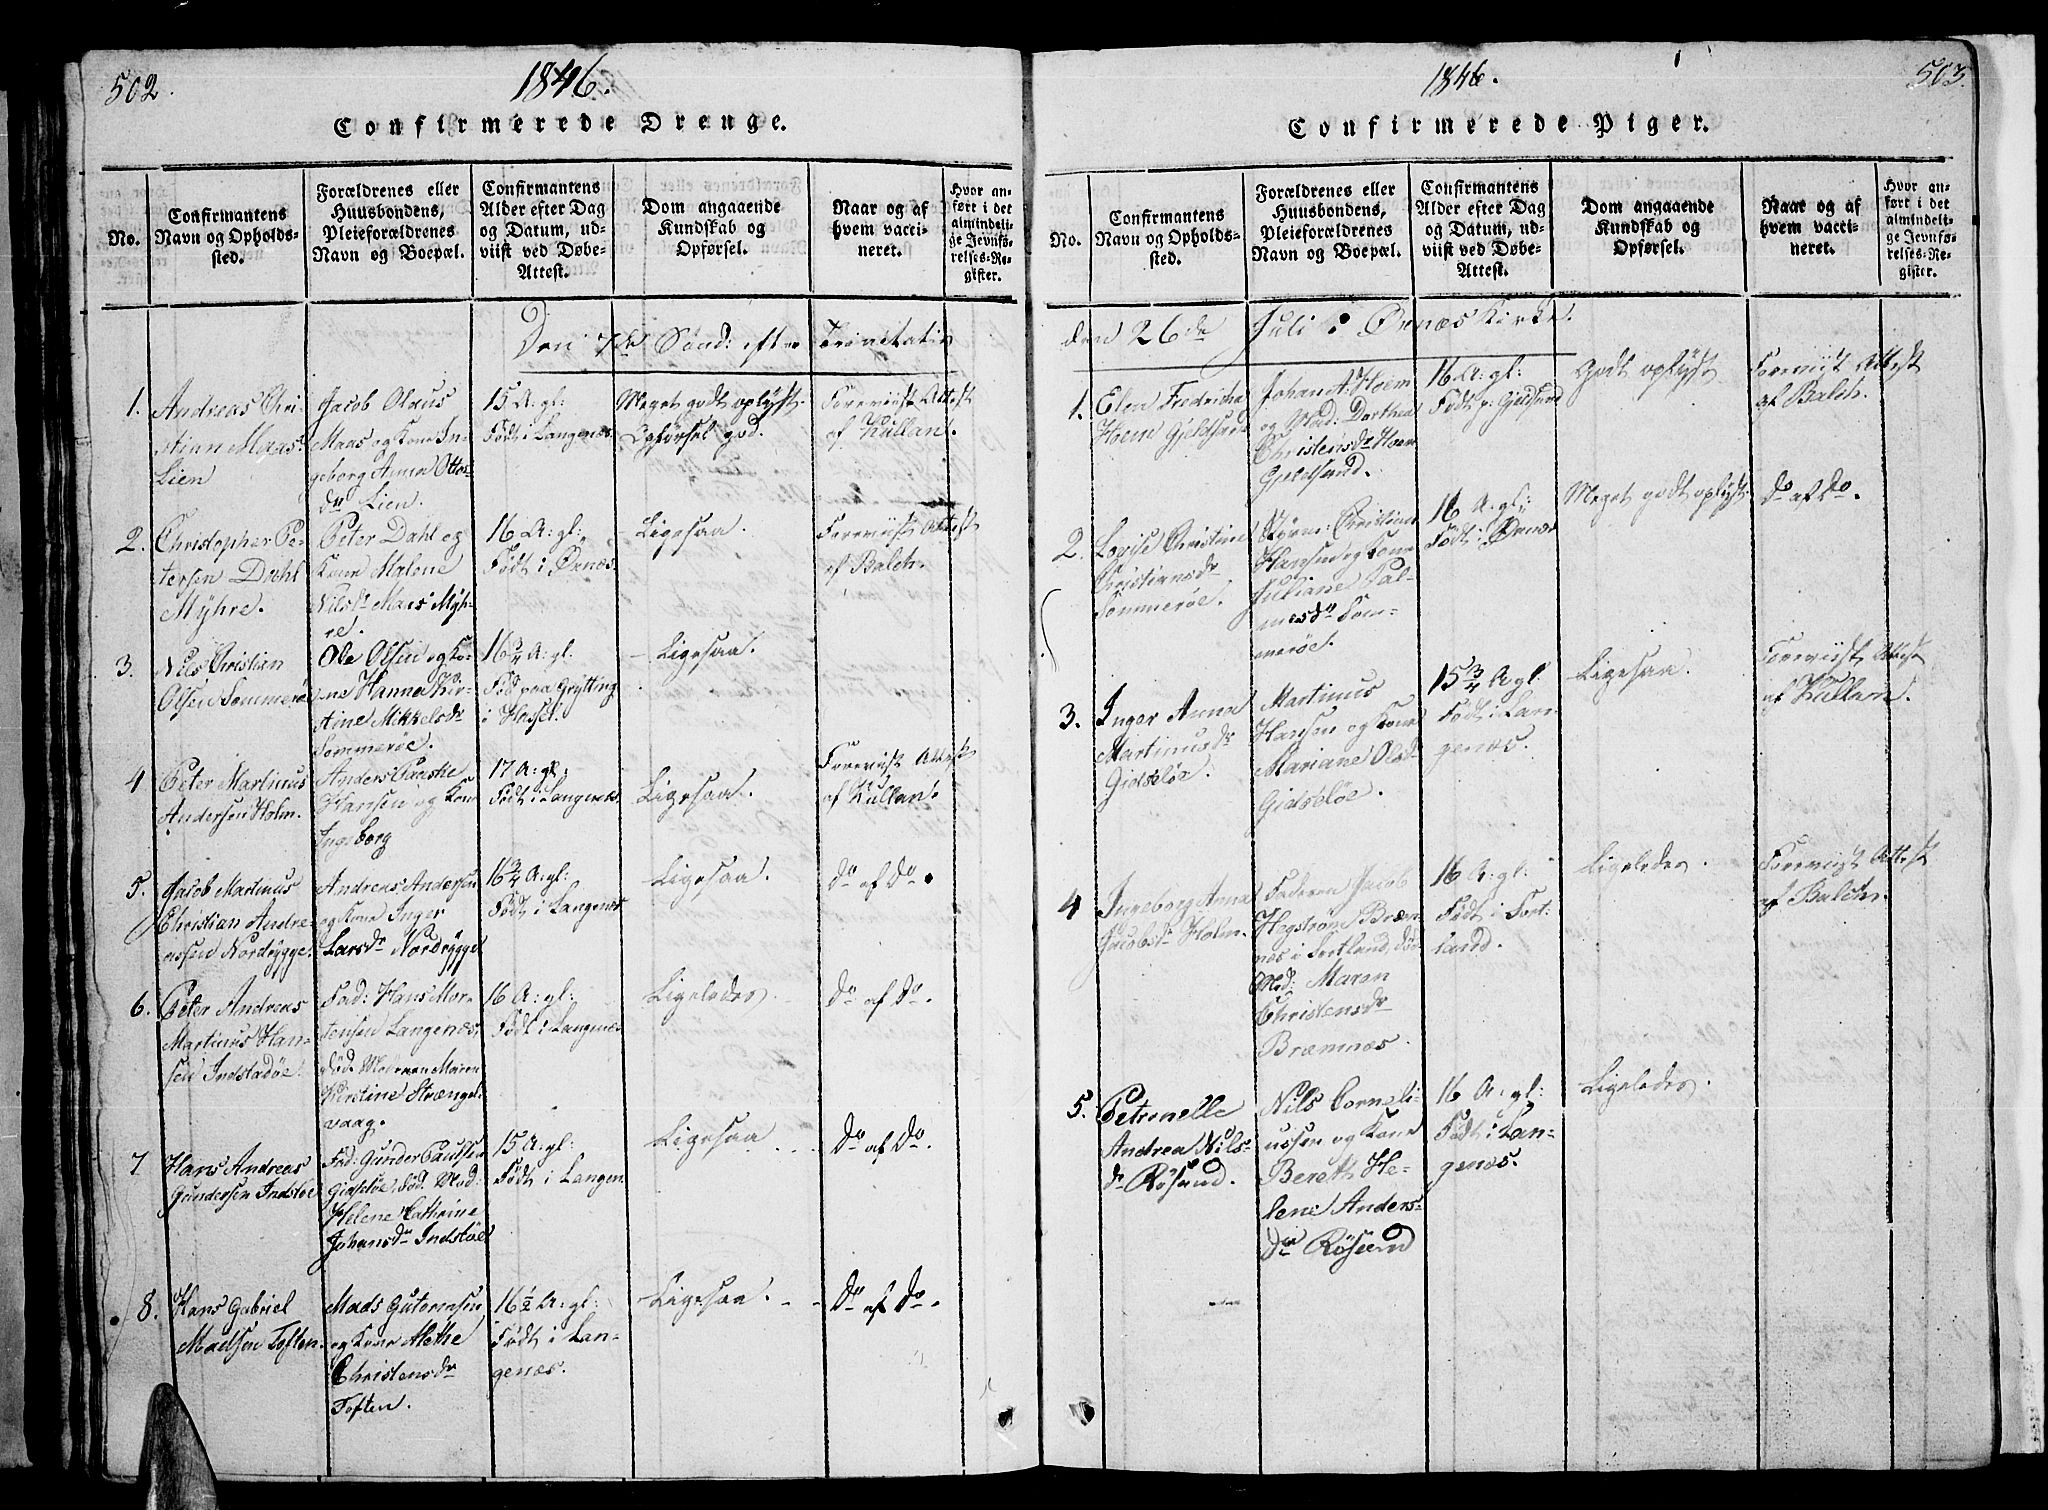 502.
1846.
Confirmerede Drenge.
No.
Confirmantens
Navn og Opholds-
sted.
Forældrenes eller
Huusbondens,
Pleieforældrenes
Navn og Boepæl.
Confirmantens
Alder efter Dag
og Datum, ud-
viist ved Døbe-
Attest.
Dom angaaende
Kundskab og
Opførsel.
Naar og af
hvem vacci-
neret.
Hvor an-
ført i det
almindeli-
ge Jevnfø-
relses-Re-
gister.
Den 7de Sønd: efter Trinitatis
1.
Andreas Chri-
stian Maas
Lien
Jacob Olaus
Maas og Kone In-
geborg Anna Ottos-
dr Lien.
15 A: gl:
Født i Langenæs.
Meget godt oplyst.
Opførsel god.
Foreviist Attest
af Kullan.
2.
Christopher Pe-
tersen Dahl
Myhre.
Peter Dahl og
Kone Malene
Nilsdr Maas Myh-
re.
16 A: gl:
Født i Ørnæs.
Ligesaa.
Foreviist Attest
af Balch.
3.
Nils Christian
Olsen Sommerøe
Ole Olsen og Ko-
ne Hanna Kir-
stine Mikkelsdr
Sommerøe.
16 3/4 A: gl:
Fød paa Grytting
i Hassel.
Ligesaa.
4
Peter Martinus
Andersen Holm.
Anders Paaske
Hansen og Kone
Ingeborg
17 A: gl:
Født i Langenæs.
Ligesaa.
Foreviist Attest
af Kullan.
5.
Jacob Martinus
Christian Andre-
assen Nordrygge.
Andreas Andersen
og Kone Inger
Larsdr Nordrygge
16 3/4 A: gl:
Født i Langenæs
Ligesaa.
Do af Do.
6.
Peter Andreas
Martinus Han-
sen Indstadøe.
Fad: Hans Mor-
tensen Langenæs,
død. Moderen Maren
Kirstine Strængel-
vaag.
16 A: gl:
Født i Langenæs
Ligeledes.
Do af Do.
7
Hans Andreas
Gundersen Indstøe
Fad: Gunder Paulsen
Gidsløe, død. Mod:
Helene Cathrine
Johansdr Indstøe
15 A: gl:
Født i Langen.
Ligesaa
Do af Do.
8.
Hans Gabriel
Madsen Toften.
Mads Gutormsen
og Kone Methe
Christensdr
Toften.
16 1/2 A: gl:
Født i Lan-
genæs.
Ligesaa.
Do af Do.
1846.
503.
Confirmerede Piger.
No.
Confirmantens
Navn og Opholds-
sted.
Forældrenes eller
Huusbondens,
Pleieforældrenes
Navn og Boepæl.
Confirmantens
Alder efter Dag
og Datum, ud-
viist ved Døbe-
Attest.
Dom angaaende
Kundskab og
Opførsel.
Naar og af
hvem vacci-
neret.
Hvor an-
ført i det
almindeli-
ge Jevnfø-
relses-Re-
gister.
den 26de Juli i Ørnæs Kirke.
1.
Elen Fredricha
Hoem Gjeldsund
Johan A. Hoem
og Mad: Dorthea
Christensdr Hoem
Gjeldsund.
16 A: gl:
Født p. Gjeldsund
Godt oplyst
Foreviist Attest
af Balch.
2.
Lovise Christine
Christiansdr
Sommerøe.
Christian
Hansen og Kone
Juliane Pal-
mesdr Som-
merøe.
16 A: gl:
Født i Ørnæs
Meget godt oplyst.
Do af Do.
3.
Inger Anna
Martinusdr
Gidsløe.
Martinus
Hansen og Kone
Mariane Olsdr
Gidsløe.
15 3/4 A gl:
Født i Lan-
genæs.
Ligesaa.
Foreviist Attest
af Kullan.
4
Ingeborg Anna
Jacobsdr Holm.
Faderen Jacob
Hegstrøm Bræm-
næs i Sortland, død
Mod: Maren
Christensdr
Bræmnæs.
16 A: gl:
Født i Sort-
landd.
Ligeledes.
Foreviist Attest
af Balch.
5.
Petronelle
Andrea Nils-
dr Røsund.
Nils Corneli-
ussen og Kone
Bereth He-
lene Anders-
dr Røsund
16 A: gl:
Født i Lan-
genæs.
Ligeledes.